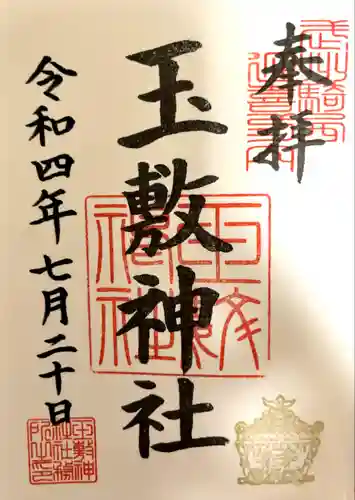 奉拝
玉敷神社
令和四年七月二十日
玉敷神社
玉敷神
社社務
所之印